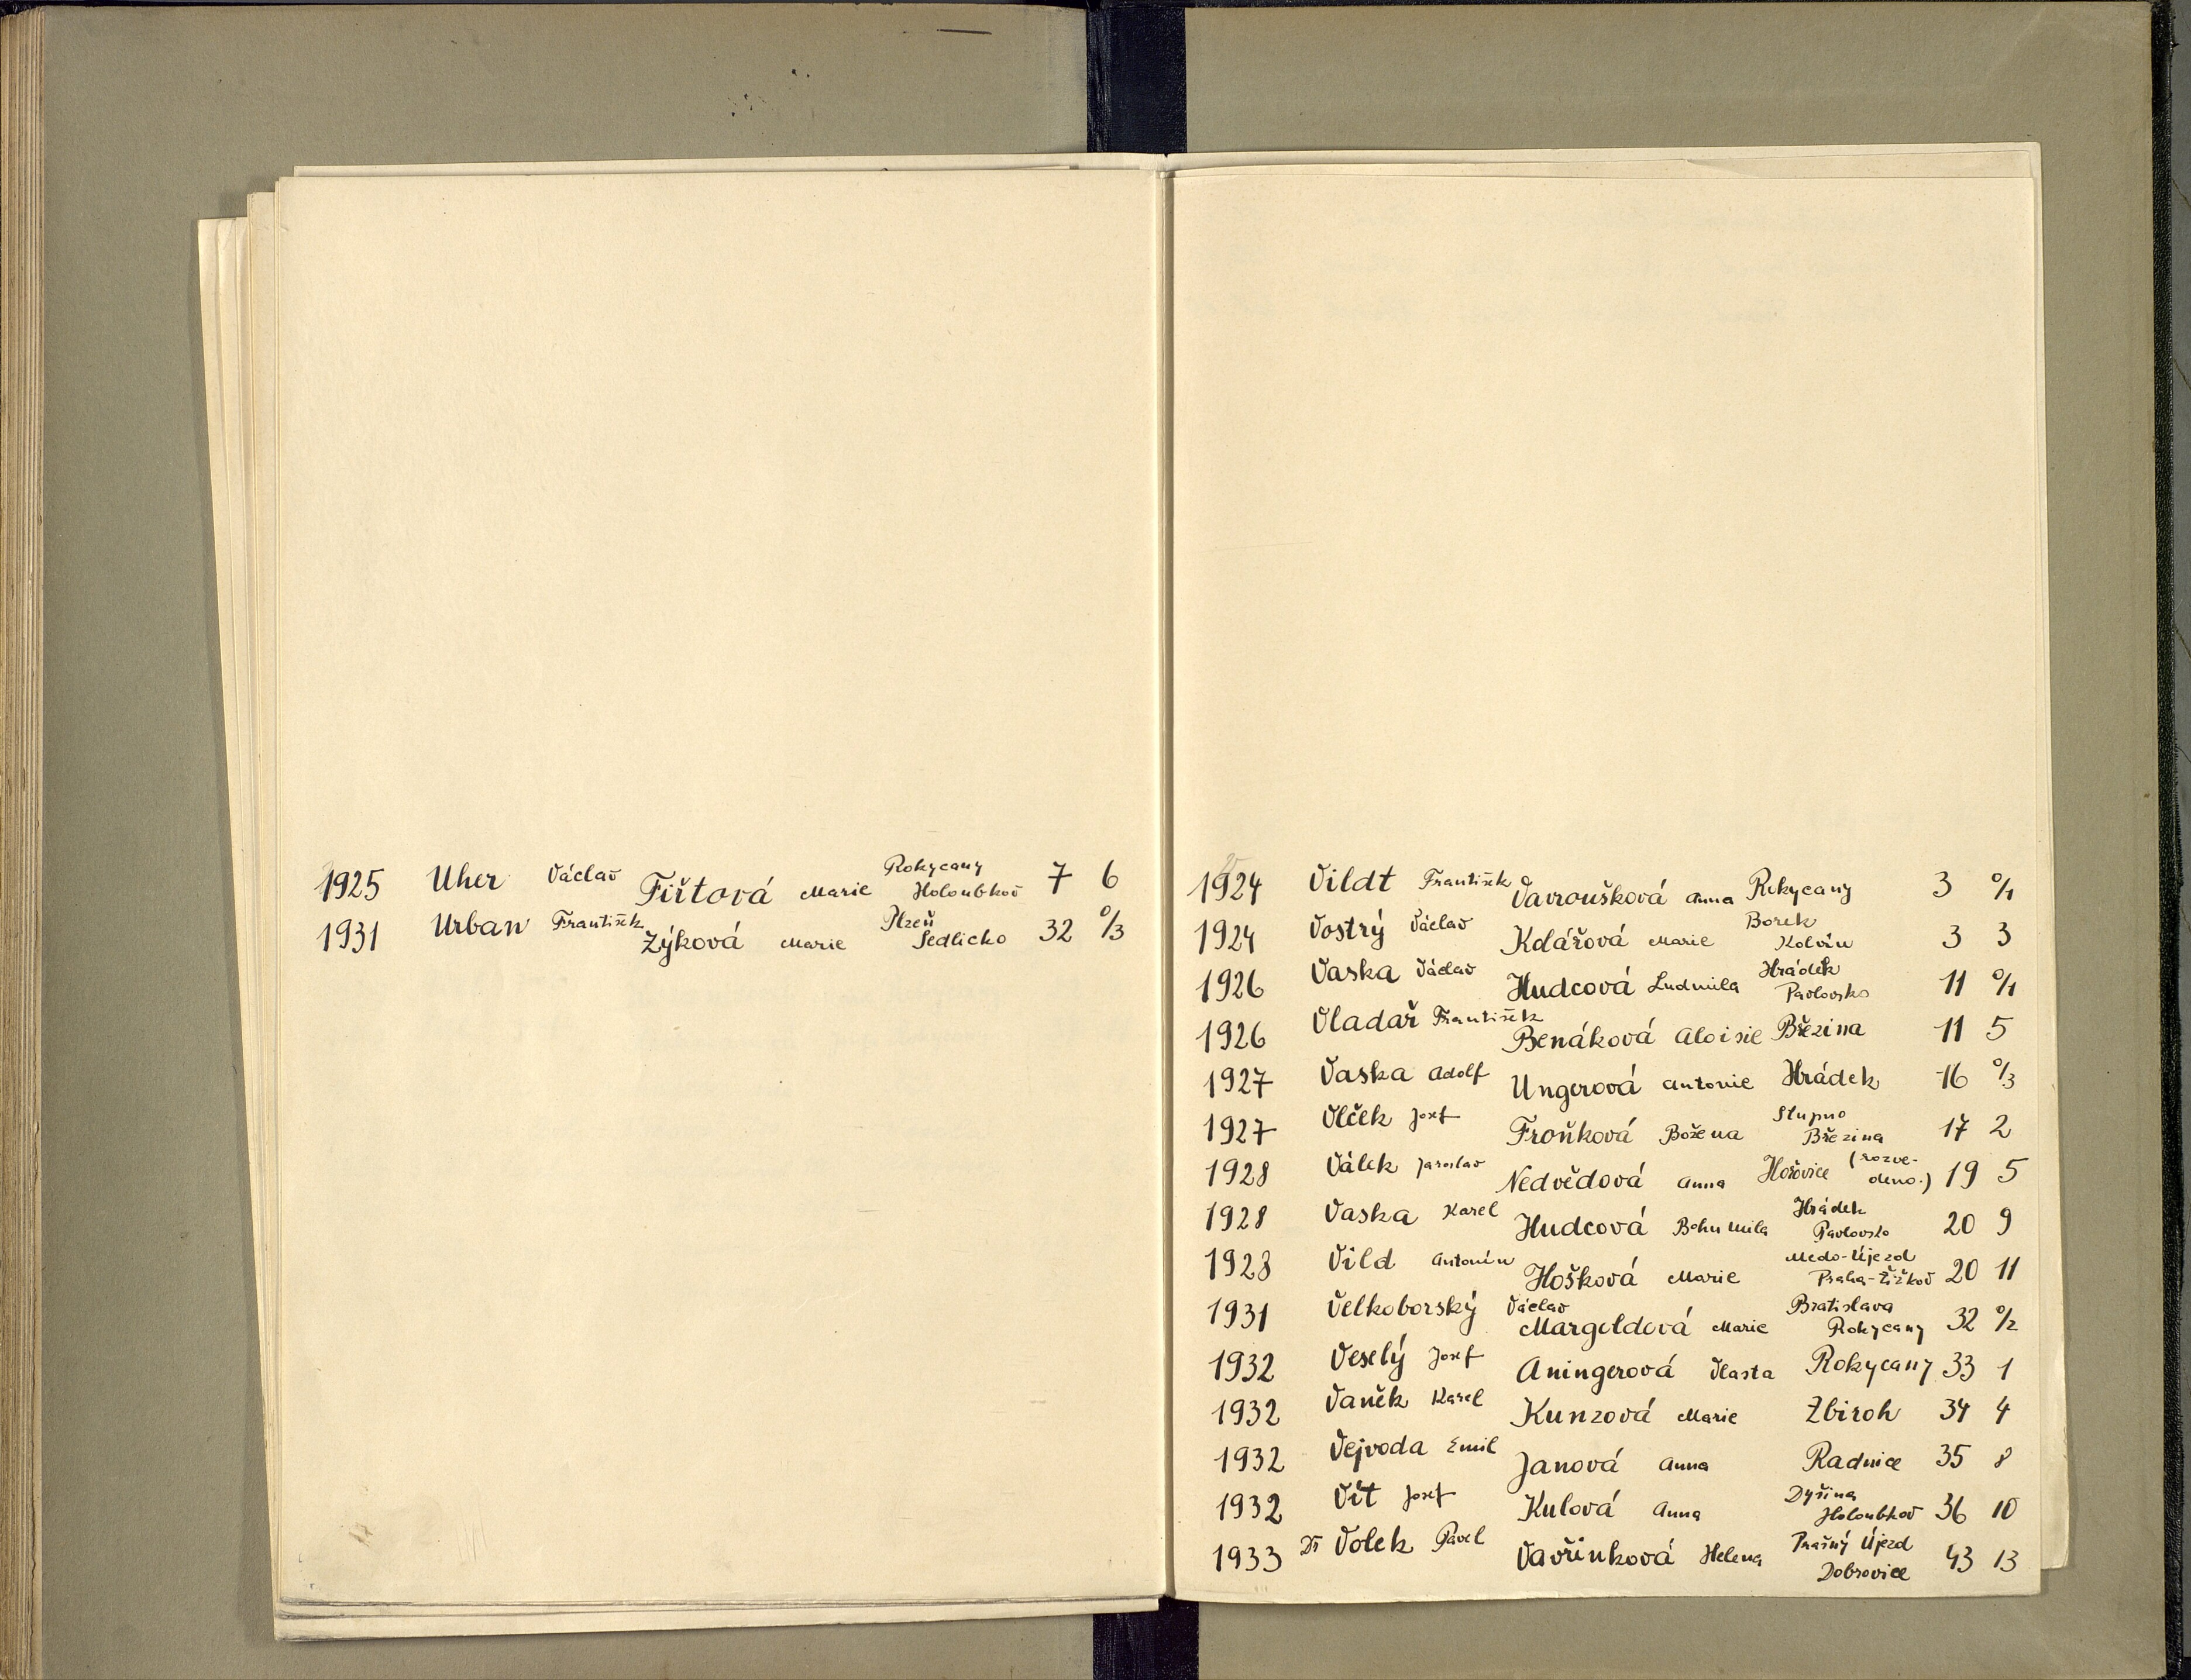 1925 Uher Václav Fiřtová Marie Rokycany Holoubkov 7 6
1931 Urban František Zýková Marie Plzeň Sedlicko 32 %3
1924 Vildt František Vavroušková Anna Rokycany 3 %1
1924 Vostrý Václav Kdářová Marie Borek Kolvín 3 3
1926 Vaska Václav Hudcová Ludmila Hrádek Pavlovsko 11 %1
1926 Vladař František Benáková Aloisie Březina 11 5
1927 Vaska Adolf Ungerová Antonie Hrádek 16 %3
1927 Vlček Josef Froňková Božena Stupno Březina 17 2
1928 Válek Jaroslav Nedvědová Anna Hořovice (rozve-deno.) 19 5
1928 Vaska Karel Hudcová Bohumila Hrádek Pavlovsko 20 9
1928 Vild Antonín Hošková Marie Medo-Újezd Praha-Žižkov 20 11
1931 Velkoborský Václav Margoldová Marie Bratislava Rokycany 32 %2
1932 Veselý Josef Aningerová Vlasta Rokycany 33 1
1932 Vaněk Karel Kunzová Marie Zbiroh 34 4
1932 Vejvoda Emil Janová Anna Radnice 35 8
1932 Vít Josef Kulová Anna Dyšina Holoubkov 36 10
1933 Dr Volek Pavel Vavřinková Helena Prašný Újezd Dobrovice 43 13